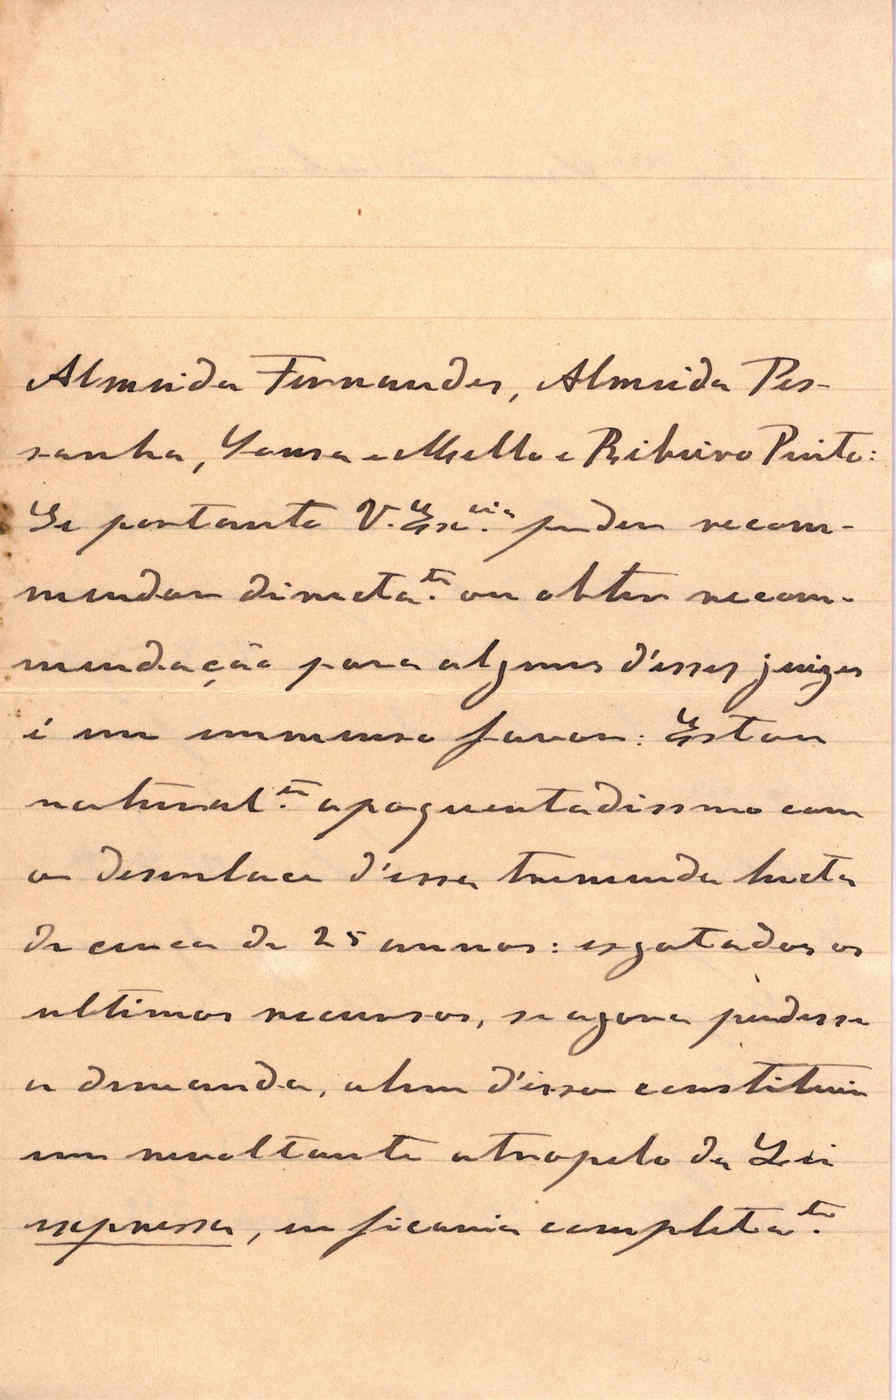 Almeida Fernandes, Almeida Pes-
sanha, Sousa e Mello e Ribeiro Pinto:
Se portanto V. Ex.cia poder recom-
mendar directa.te ou obter recom-
mendação para alguns d'esses juizes
é um immenso favor: Estou
natural.te apoquentadissmo com
o desenlace d'essa tremenda lucta
de cerca de 25 annos: esgotados os
ultimos recursos, se agora perdesse
a demanda, alem d'isso constituir
um revoltante atropelo da Lei
expressa, eu ficaria completa.te